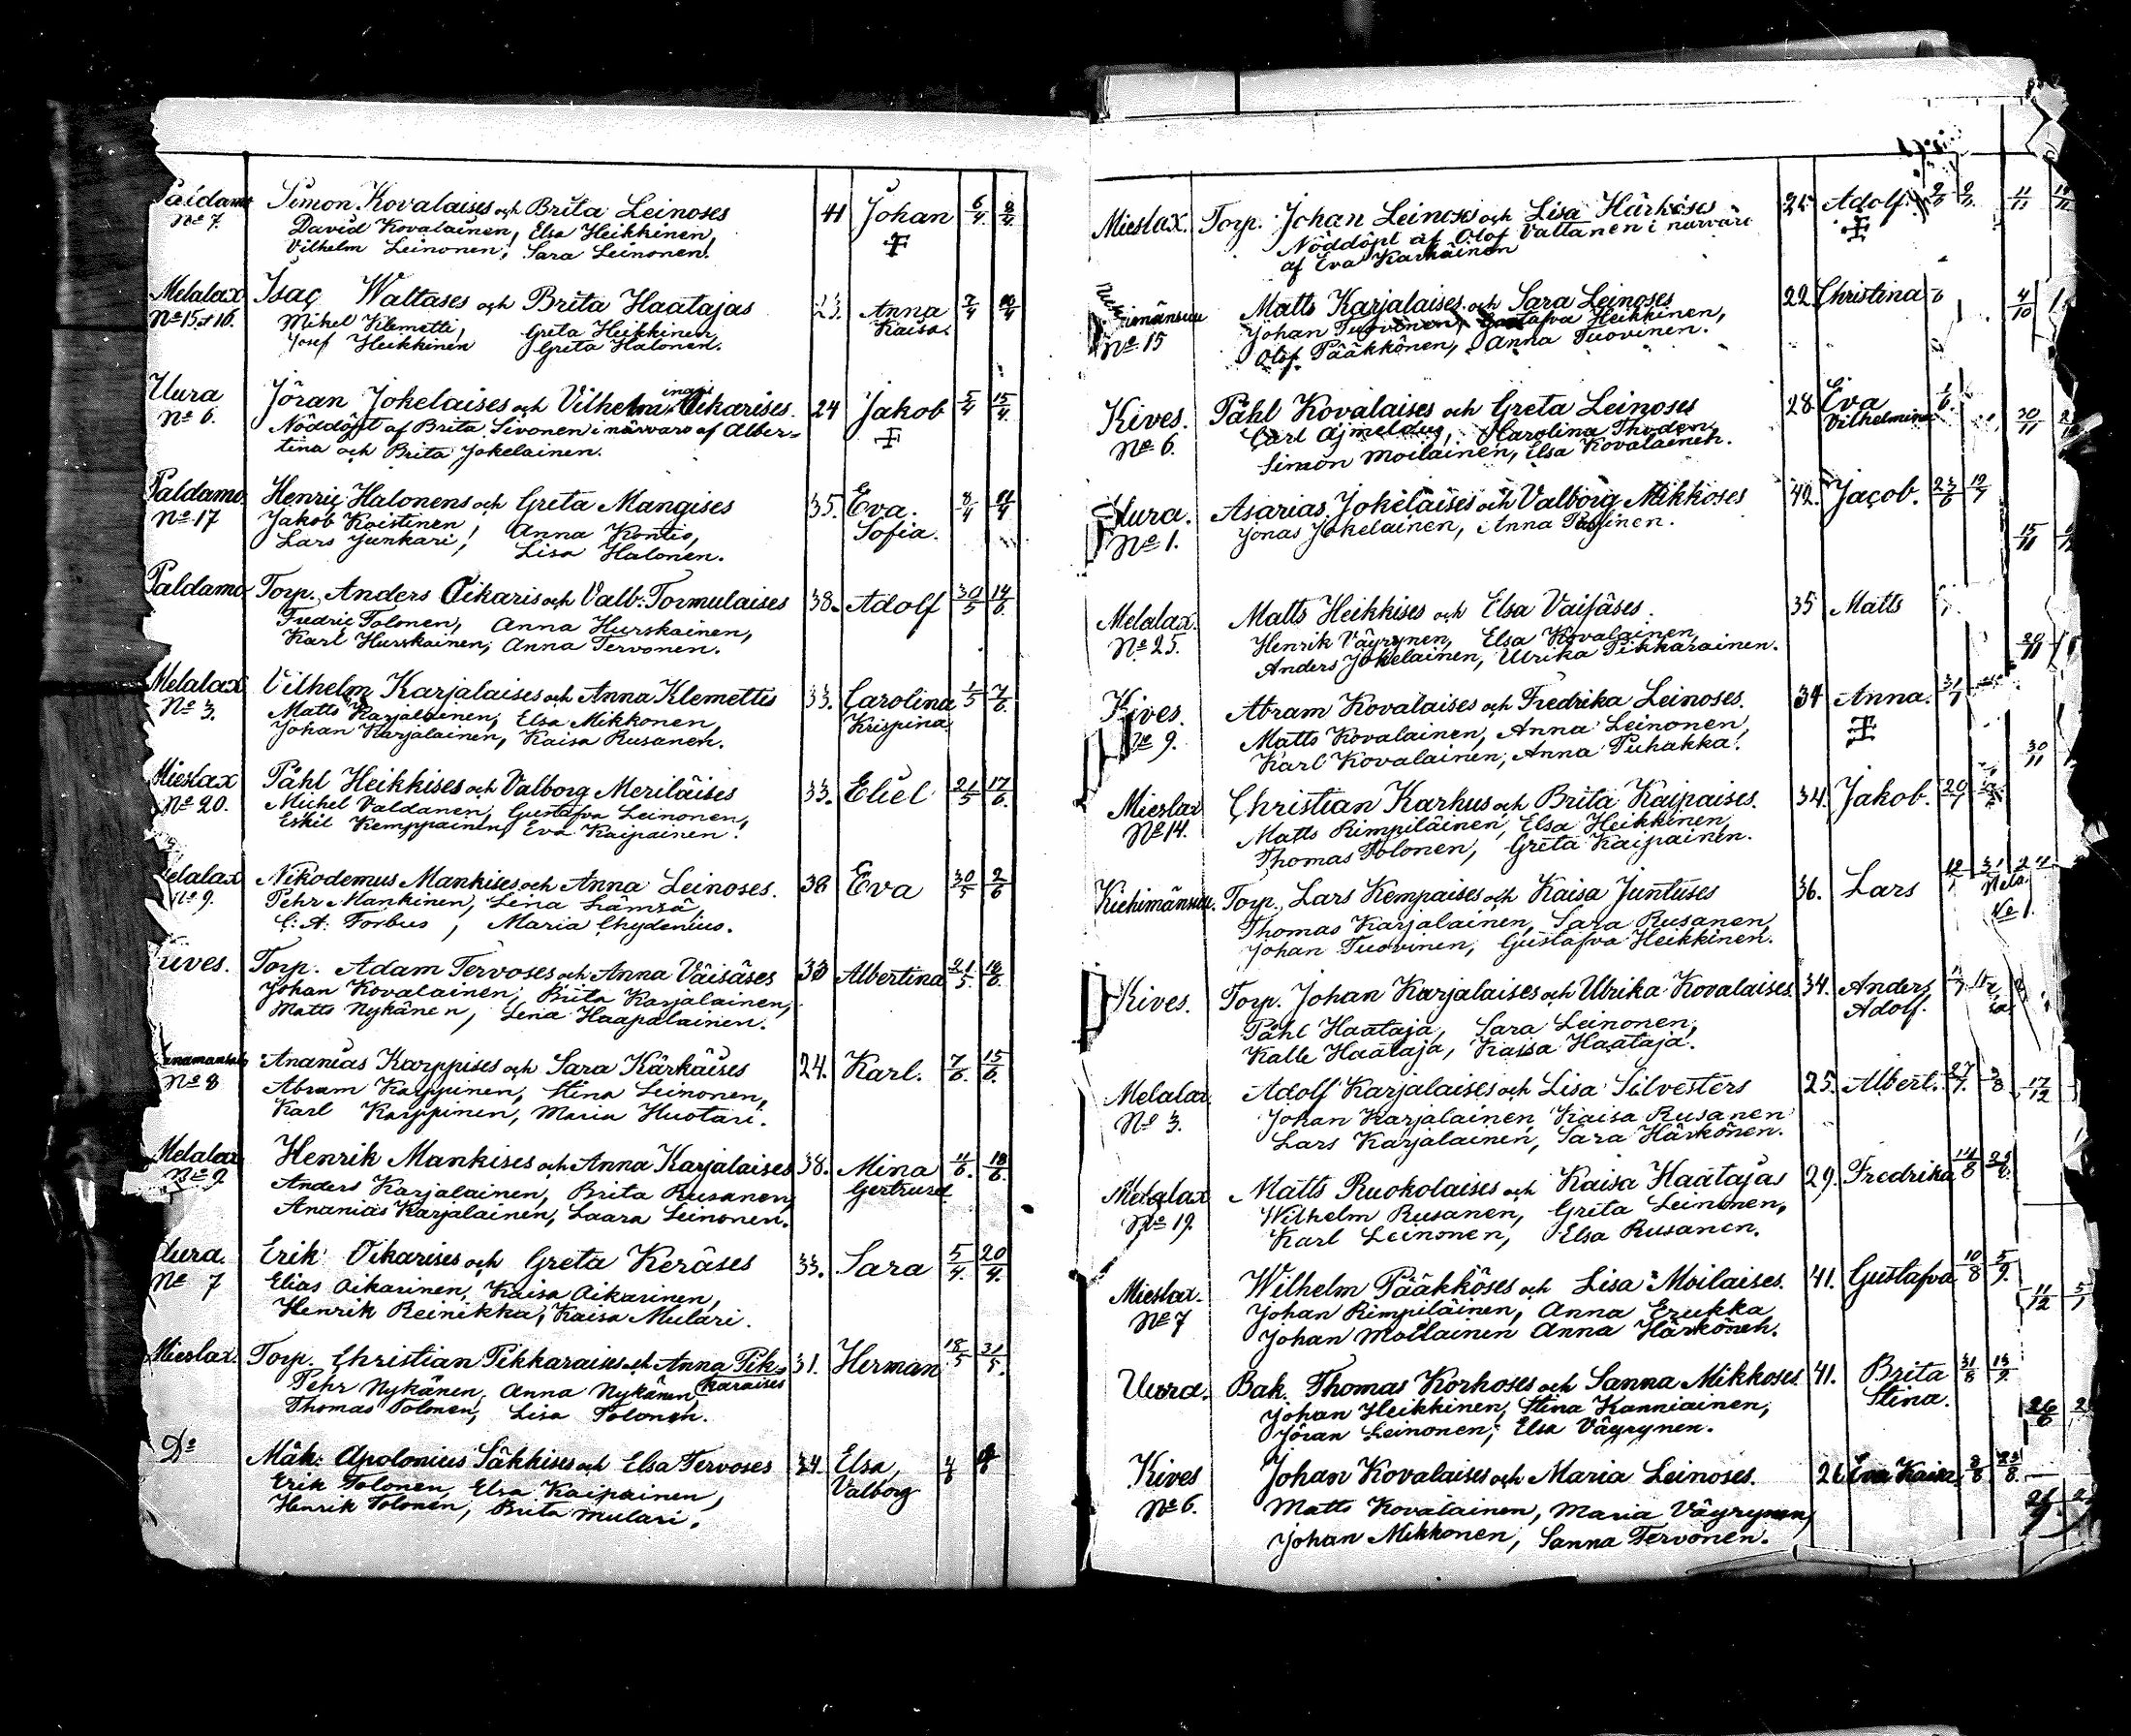 Paldamo Simon Kovalaises och Brita Leinoses 41 Johan 6/4. 8/4
No 7. David Kovalainen, Elsa Heikkinen,
Vilhelm Leinonen, Sara Leinonen.
Melalax Isac Waltases och Brita Haatajas 23. Anna 2/4
No 15 & 16. Mihel Klemetti, Greta Heikkinen, Kaisa.
Josef Heikkinen Greta Halonen.
Uura Jöran Jokelaises och Vilhelmina Oikarises. 24 Jakob 5/4 15/4
No 6. Nöddöpt af Brita Sivonen i närvaro af Alber-
tina och Brita Jokelainen.
Paldamo. Henric Halonens och Greta Mangises 35. Eva. 8/4
No 17 Jakob Koistinen, Anna Kontio, Sofia.
Lars Junkari, Lisa Halonen.
Paldamo Torp. Anders Oikaris och Valb: Tormulaises 38. Adolf 30/5 14/6.
Fredric Tolonen, Anna Hurskainen,
Karl Hurskainen, Anna Tervonen.
Melalax Vilhelm Karjalaises och Anna Klemettis 33. Carolina 1/5 7/6.
No 3. Matts Karjalainen, Elsa Mikkonen, Krispina
Johan Karjalainen, Kaisa Rusanen.
Mieslax Påhl Heikkises och Valborg Meriläises 33. Eliel 21/5 17/6.
No 20. Michel Valdanen, Gustafva Leinonen,
Eskil Kemppainen, Eva Kaipainen.
Melalax Nikodemus Mankises och Anna Leinoses. 38 Eva 30/5 2/6
No 9. Pehr Mankinen, Lena Lämsä,
C: A: Forbus, Maria Chydenius.
Kives. Torp. Adam Tervoses och Anna Väisäses 33 Albertina 21/5.
Johan Kovalainen, Brita Karjalainen,
Matts Nykänen, Lena Haapalainen.
Ananias Karppises och Sara Kärkäises 24. Karl. 7/6. 15/6.
No 8 Abram Karppinen, Stina Leinonen,
Karl Karppinen, Maria Huotari.
Melalax Henrik Mankises och Anna Karjalaises 38. Mina 11/6. 18/6.
No 9. Anders Karjalainen, Brita Rusanen, Gertrurd
Ananias Karjalainen, Laara Leinonen.
Uura. Erik Oikarises och Greta Keräses 33. Sara 5/4. 20/4.
No 7 Elias Oikarinen, Kaisa Oikarinen,
Henrik Reinikka, Kaisa Mulari.
Mieslax. Torp. Christian Pikkaraises och Anna Pik- 31. Herman 18/5 31/5.
karaises
Pehr Nykänen, Anna Nykänen,
Thomas Tolonen, Lisa Tolonen.
Do Mäk: Apolonius Säkkises och Elsa Tervoses 24. Elsa,
Erik Tolonen, Elsa Kaipainen, Valborg
Henrik Tolonen, Brita Mulari.
Mieslax. Torp. Johan Leinoses och Lisa Härköses 25 Adolf.
Nöddöpt af Olof Valtanen i närvaro
af Eva Karhäinen
Matts Karjalaises och Sara Leinoses 22 Christina
No 15 Johan Tuovinen, Gustafva Heikkinen,
Olof Pääkkönen, Anna Tuovinen.
Kives. Påhl Kovalaises och Greta Leinoses 28 Eva
No 6. Carl Ajmeldus, Carolina Thoden, Vilhelmina
Simon Moilainen, Elsa Kovalainen.
Uura. Asarias Jokelaises och Valborg Mikkoses 42. Jacob. 23/6
No 1. Jonas Jokelainen, Anna
Melalax. Matts Heikkises och Elsa Vaisäses. 35 Matts
No 25. Henrik Väyrynen, Elsa Kovalainen,
Anders Jokelainen, Ulrika Pikkarainen.
Kives. Abram Kovalaises och Fredrika Leinoses. 34 Anna. 31/7
No 9. Matts Kovalainen, Anna Leinonen,
Karl Kovalainen, Anna Puhakka.
Mieslax Christian Karhus och Brita Kaipaises. 34. Jakob. 20/7
No 14. Matts Rimpiläinen, Elsa Heikkinen,
Thomas Tolonen, Greta Kaipainen.
Kiehimänsuu. Torp. Lars Kempaises och Kaisa Juntuses 36. Lars
Thomas Karjalainen, Sara Rusanen,
Johan Tuovinen, Gustafva Heikkinen.
Kives. Torp. Johan Karjalaises och Ulrika Kovalaises. 34. Anders
Påhl Haataja, Sara Leinonen, Adolf.
Kalle Haataja, Kaisa Haataja.
Melalax Adolf Karjalaises och Lisa Silvesters 25. Albert. 27/7.
No 3. Johan Karjalainen, Kaisa Rusanen
Lars Karjalainen, Sara Härkönen.
Melalax Matts Ruokolaises och Kaisa Haatajas 29. Fredrika 14/8
No 19. Wilhelm Rusanen, Greta Leinonen,
Karl Leinonen, Elsa Rusanen.
Mieslax. Wilhelm Pääkköses och Lisa Moilaises. 41. Gustafva 10/8 5/9.
No 7 Johan Rimpiläinen, Anna Erukka
Johan Moilainen Anna Härkönen.
Uura. Bak. Thomas Korhoses och Sanna Mikkoses. 41. Brita 31/8 13/9.
Johan Heikkinen, Stina Kanniainen, Stina.
Jöran Leinonen, Elsa Väyrynen.
Kives Johan Kovalaises och Maria Leinoses. 26 Eva Kaisa. 8/8 23/8.
No 6. Matts Kovalainen, Maria Väyrynen,
Johan Mikkonen, Sanna Tervonen.